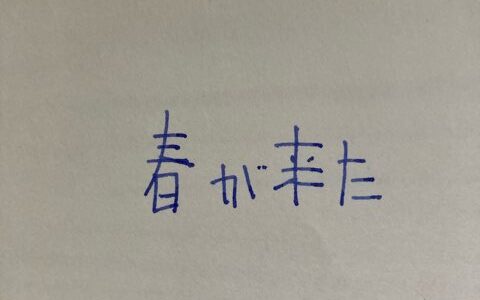 春が来た